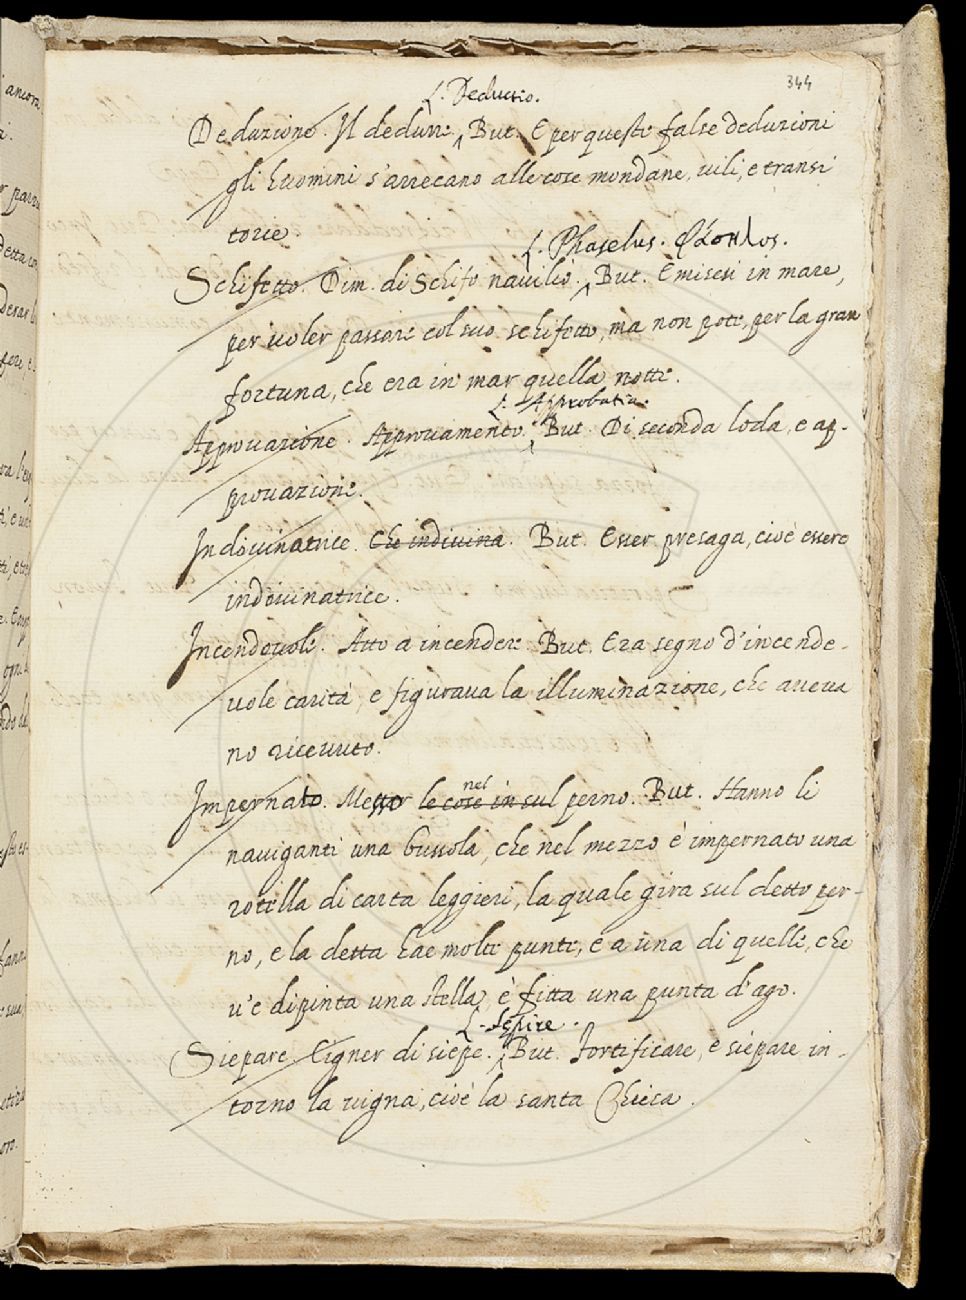 344
L. Deductio.
Deduzione. Il dedurre. But. E per queste false deduzioni
gli huomini s'arrecano alle cose mondane, vili, e transi
torie.
L. Phaselus. Φάσηλος.
Schifetto. Dim. di Schifo navilio. But. E misesi in mare,
per voler passare col suo schifetto, ma non potè, per la gran
fortuna, che era in mar quella notte.
L. Approbatio.
Approvazione. Approvamento. But. Di seconda loda, e ap-
provazione.
Indovinatrice. Che indivina. But. Esser presaga, cioè essere
indovinatrice.
Incendevole. Atto a incendere But. Era segno d'incende-
vole carità, e figurava la illuminazione, che aveva
no ricevuto.
nel
Impernato. Messo le cose in sul perno. But. Hanno li
naviganti una bussola, che nel mezzo è impernato una
rotella di carta leggieri, la quale gira sul detto per-
no, e la detta hae molte punte, e a una di quelle, che
v'è dipinta una stella, è fitta una punta d'ago.
L. Sepire.
Siepare. Cigner di siepe. But. Fortificare, e siepare in-
torno la vigna, cioè la santa Chiesa.